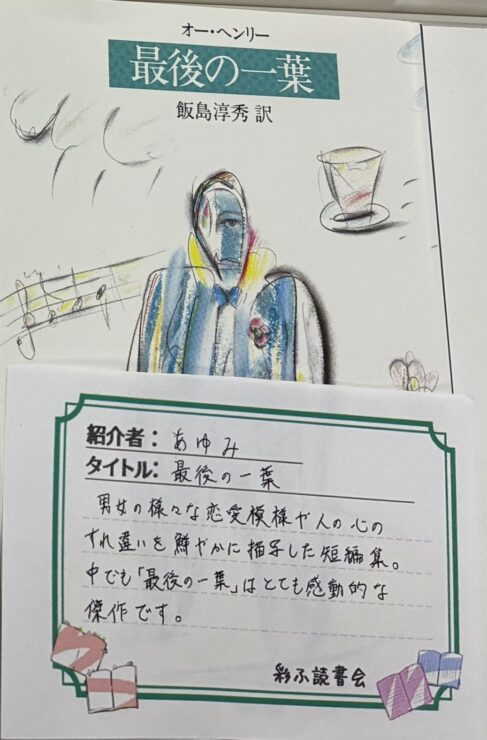 オー・ヘンリー
最後の一葉
飯島淳秀 訳
紹介者: あゆみ
タイトル: 最後の一葉
男女の様々な恋愛模様や人の心の
すれ違いを鮮やかに描写した短編集。
中でも「最後の一葉」はとても感動的な
傑作です。
彩ふ読書会